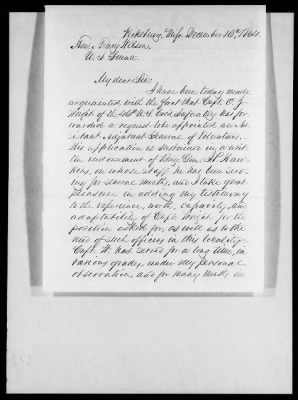 Vicksburg, Miss December 16th 1864.
Hon. Henry Wilson,
U. S. Senate
My dear Sir:
I have been today made
acquainted with the fact that Capt. O. J.
Wright of the U. S. Cold Infantry has for-
warded a request to be appointed an As-
sistant Adjutant General of Volunteers.
This application is sustained in a writ-
ten endorsement of Brig. Gen. Haw-
kins, on whose staff he has been serv-
ing for several months, and I take great
pleasure in adding my testimony
to the experience, worth, capacity, and
adaptability of Capt. Wright for the
position asked for, as well as to the
need of such officers in this locality.
Capt. W. has served for a long time, in
various grades, under my personal
observation, and for many months in